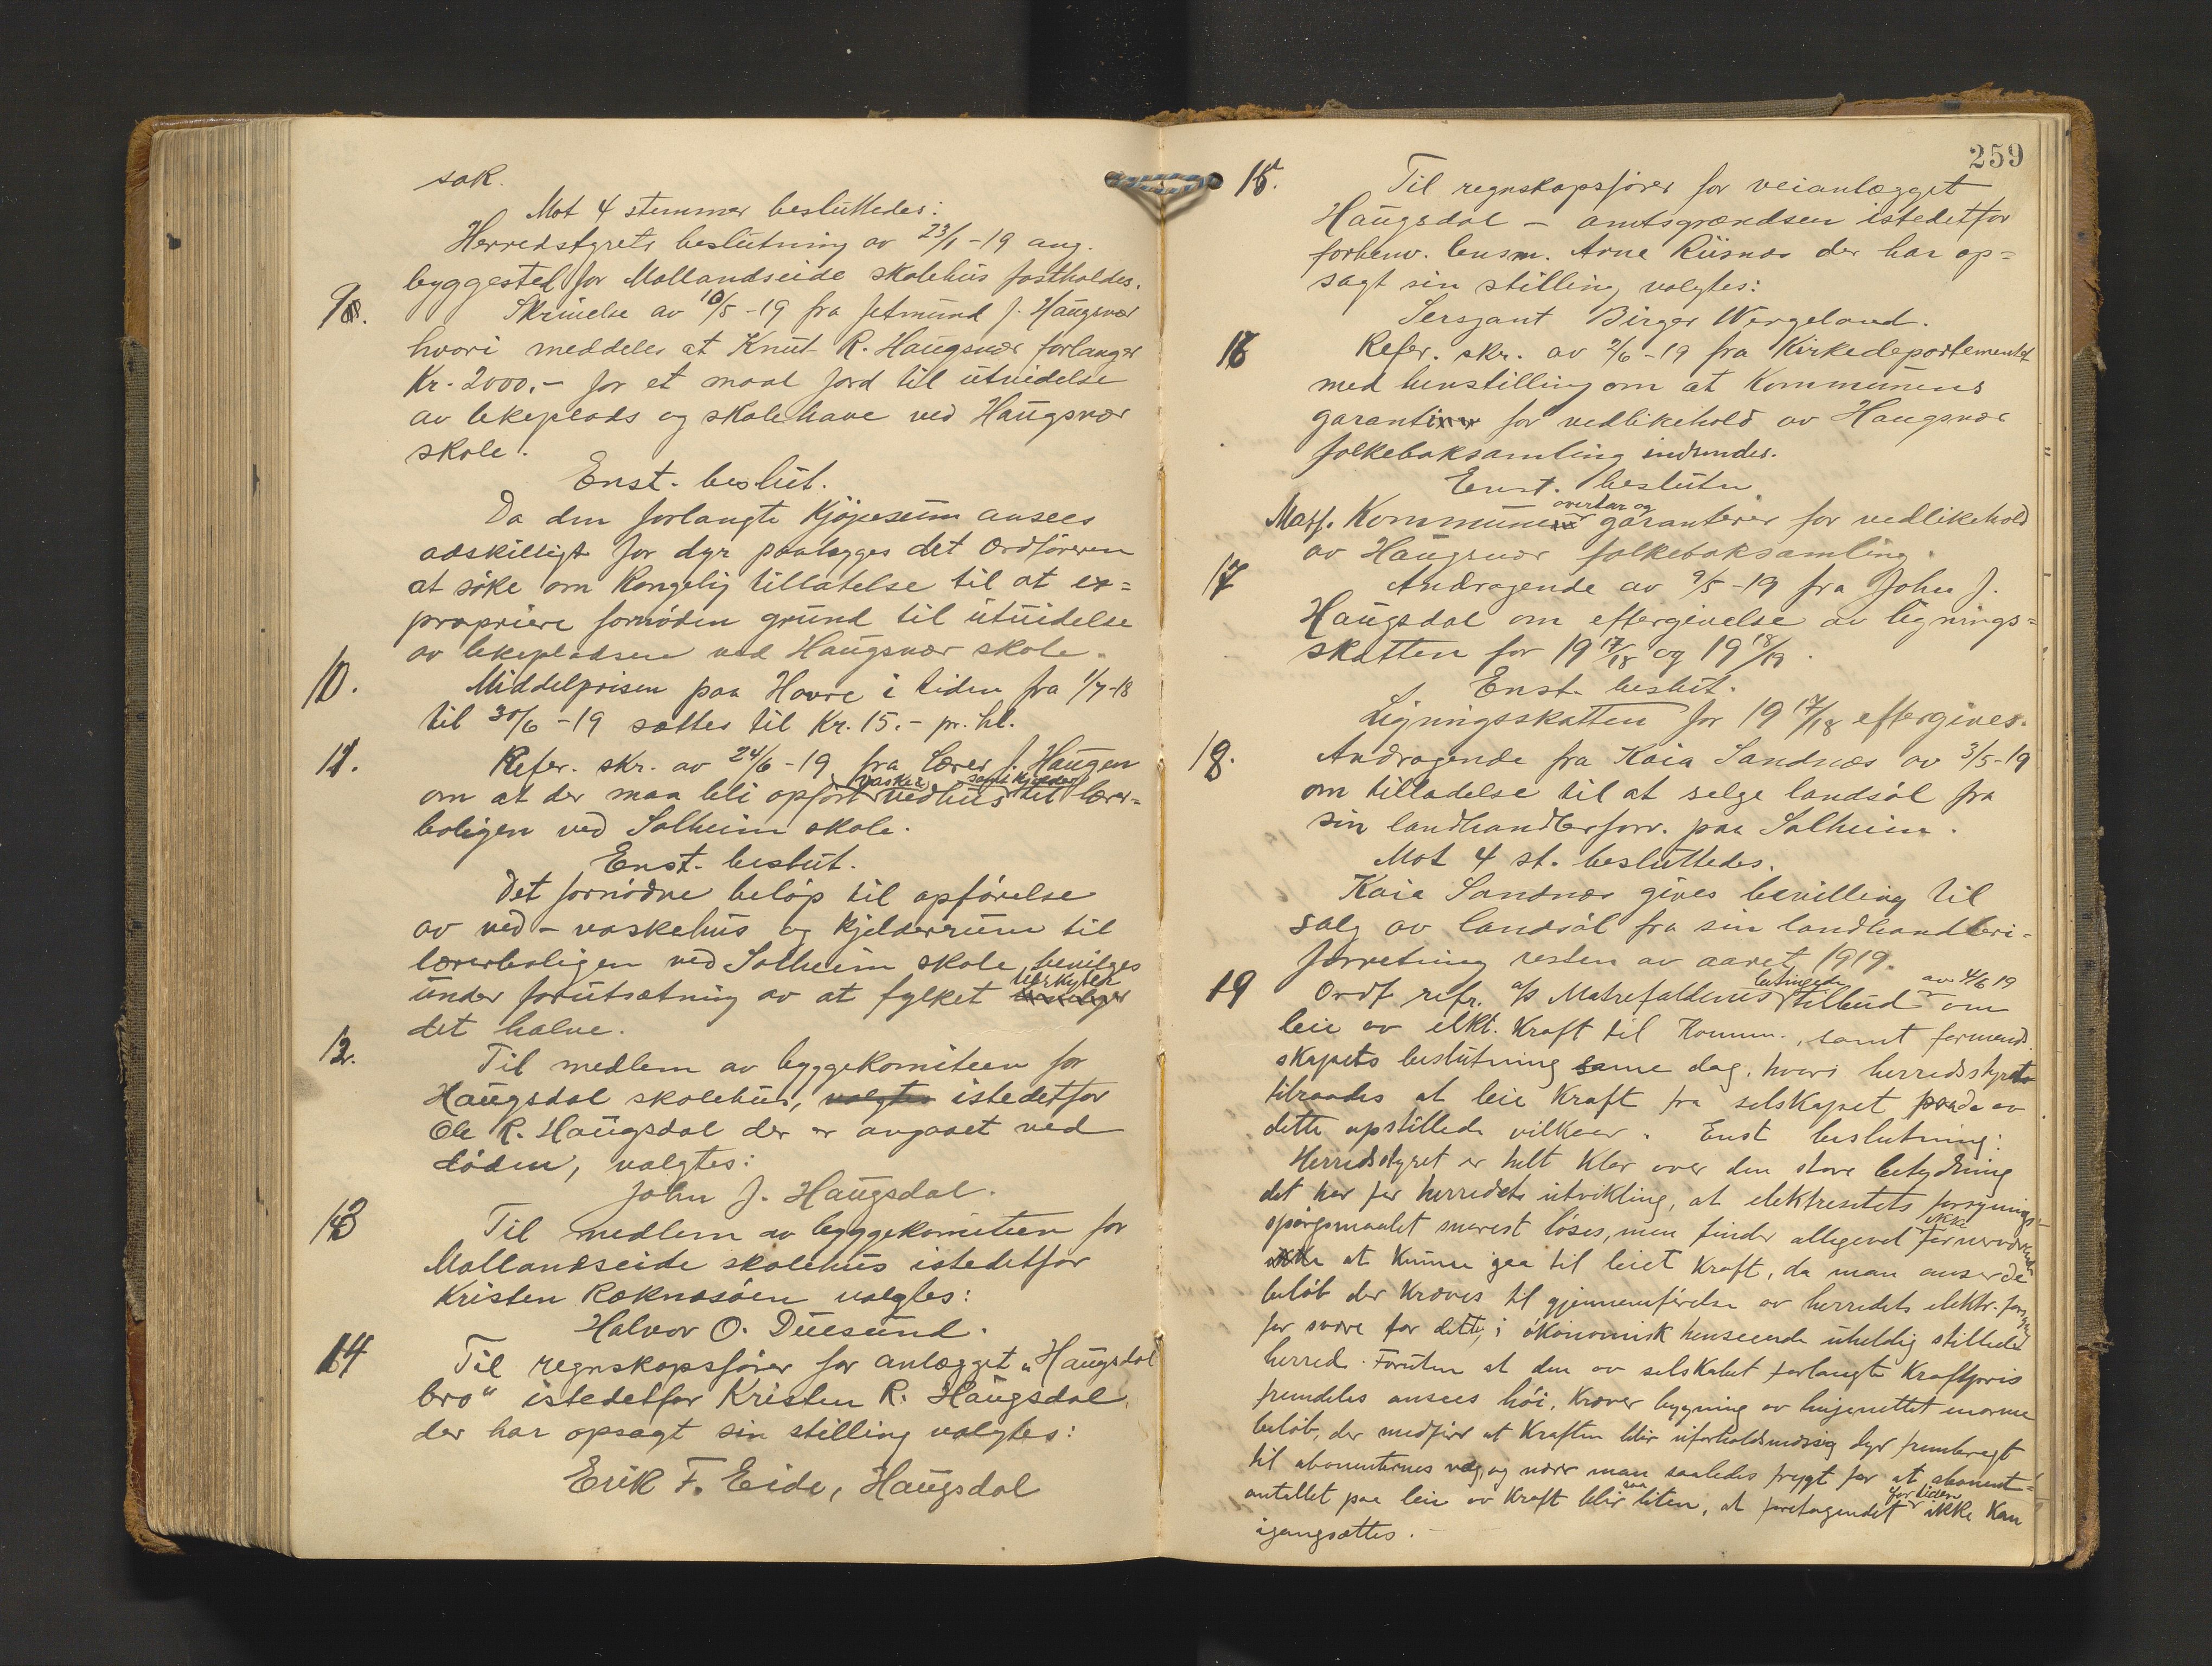 sak.
Mot 4 stemmer besluttedes:
Herredstyrets beslutning av 23/1-19 ang.
byggested for Mollandseide skolehus fastholdes.
9. Skrivelse av 10/5-19 fra Jetmund J. Haugsvær
hvori meddeles at Knut R. Haugsvær forlanger
Kr. 2000.- for et maal jord til utvidelse
av lekeplads og skolehave ved Haugsvær
skole.
Enst. beslut.
Da den forlangte kjøpesum ansees
adskilligt for dyr paalægges det Ordføreren
at søke om Kongelig tillatelse til at ex=
propriere fornøden grund til utvidelse
av lekepladsen ved Haugsvær skole.
10. Middelprisen paa Havre i tiden fra 1/7-18
til 30/6-19 sættes til Kr. 15.- pr. hl.
11. Refer. skr. av 24/6-19 fra Lærer J. Haugen
vaske samt kjelder
om at der maa bli opført vedhus til lærer=
boligen ved Solheim skole.
Enst. beslut.
Det fornødne beløp til opførelse
av ved- vaskehus og kjelderrum til
lærerboligen ved Solheim skole bevilges
under forutsætning av at fylket
det halve.
12. Til medlem av byggekomiteen for
Haugsdal skolehus, valgtes istedetfor
Ole R. Haugsdal der er avgaaet ved
døden, valgtes:
John J. Haugsdal.
13 Til medlem av byggekomiteen for
Mollandseide skolehus istedetfor
Kristen Roknæsøen valgtes:
Halvor O. Duesund.
14 Til regnskapsfører for anlægget "Haugsdal
bro" istedetfor Kristen R. Haugsdal,
der har opsagt sin stilling valgtes:
Erik F. Eide, Haugsdal
259
15. Til regnskapsfører for veianlægget
Haugsdal - amtsgrændsen istedetfor
forhenv. lensm. Arne Riisnæs der har op=
sagt sin stilling valgtes:
Sersjant Birger Wergeland.
16 Refer. skr. av 2/6-19 fra Kirkedepartementet
med henstilling om at Kommunens
garanti for vedlikehold av Haugsvær
folkeboksamling indsendes.
Enst. beslutn.
overtar og
Masf. Kommune garanterer for vedlikehold
av Haugsvær folkeboksamling.
17 Andragende av 9/5-19 fra John J.
Haugsdal om eftergivelse av lignings=
skatten for 1917/18 og 1918/19.
Enst. beslut.
Ligningsskatten for 1917/18 eftergives.
18. Andragende fra Kaia Sandnæs av 3/5-19
om tilladelse til at selge landsøl fra
sin landhandlerforr. paa Solheim.
Mot 4 st. besluttedes.
Kaia Sandnæs gives bevilling til
salg av landsøl fra sin landhandleri-
forretning resten av aaret 1919.
betingede av 4/6 19
19 Ordf refr. a/s Matrefaldenes tilbud om
leie av elkt. Kraft til Komm., samt formand
skapets beslutning same dag, hvori herredsstyret
tilraades at leie Kraft fra selskapet paa de av
dette opstillede vilkaar. Enst beslutning:
Herredsstyret er helt klar over den store betydning
det har for herredets utvikling, at elektrisitets forsynings=
ikke
spørgsmaalet snarest løses, men finder allegevel for nærværende
ikke at kunne gaa til leiet kraft, da man anser de
beløb der kræves til gjennemførelse av herredets elektr. forsyning
for svære for dette, i økonomisk henseende uheldig stillede
herred. Foruten at den av selskabet forlangte Kraftpris
fremdeles ansees høi, kræver bygning av linjenettet enorme
beløb, der medfører at Kraften blir uforholdsmæssig dyr frembragt
til abonenternes væg, og nærer man saaledes frygt for at abonent=
saa for tiden
antallet paa leie av Kraft blir liten, at foretagendet ikke kan
igangsættes.